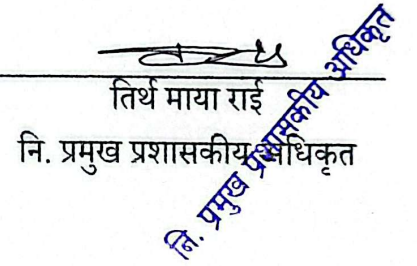 तिर्थ माया राई
नि. प्रमुख प्रशासकीय अधिकृत
नि. प्रमुख प्रशासकीय अधिकृत